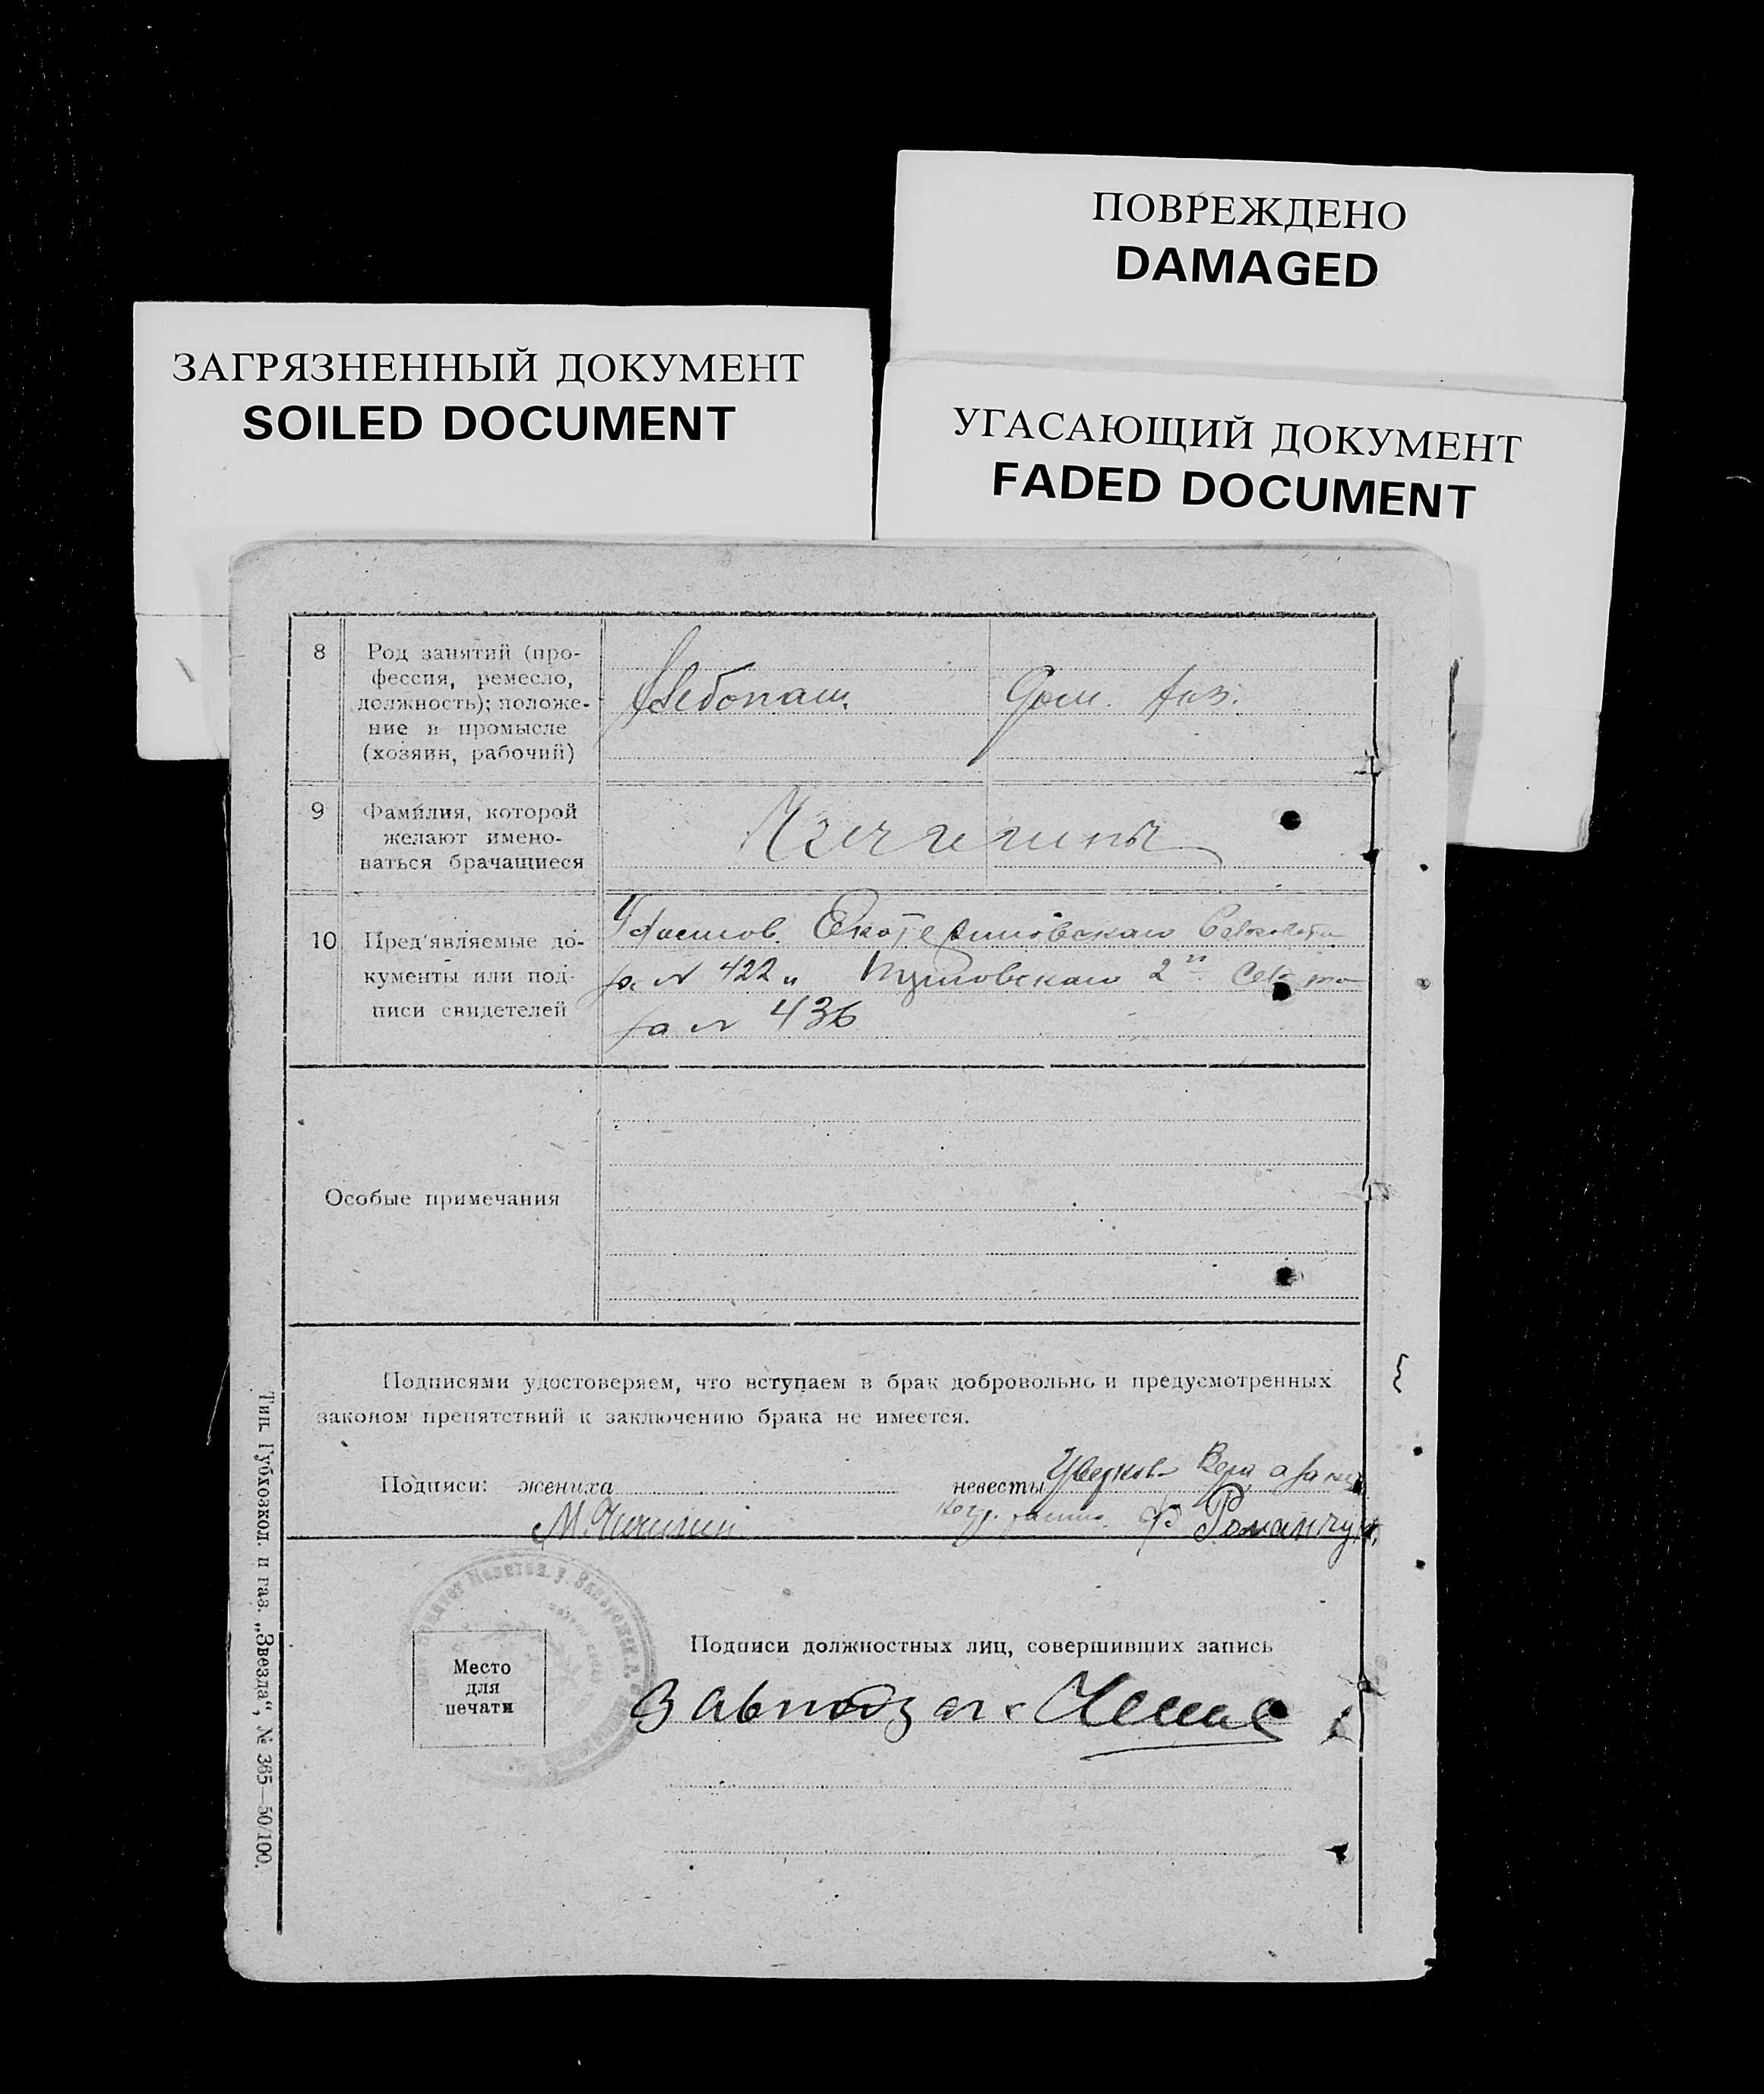 ПОВРЕЖДЕНО
DAMAGED
ЗАГРЯЗНЕННЫЙ ДОКУМЕНТ
SOILED DOCUMENT
УГАСАЮЩИЙ ДОКУМЕНТ
FADED DOCUMENT
8
Род занятий (про-
фессия, ремесло,
должность); положе-
ние в промысле
(хозяин, рабочий)
Хлебопаш.
Дом. хоз.
9
Фамилия, которой
желают имено-
ваться брачащиеся
10
Пред'являемые до-
кументы или под-
писи свидетелей
Удостов. Екатериновского
за № 422 и 2го
за № 436
Особые примечания
Подписями удостоверяем, что вступаем в брак добровольно и предусмотренных
законом препятствий к заключению брака не имеется.
Подписи: жениха
невесты Вера
Ф Романчук
Место
для
печати
Подписи должностных лиц, совершивших запись
Завподзаг
Тип. Губхозкол. п газ. „Звезда“, № 365—50/100.